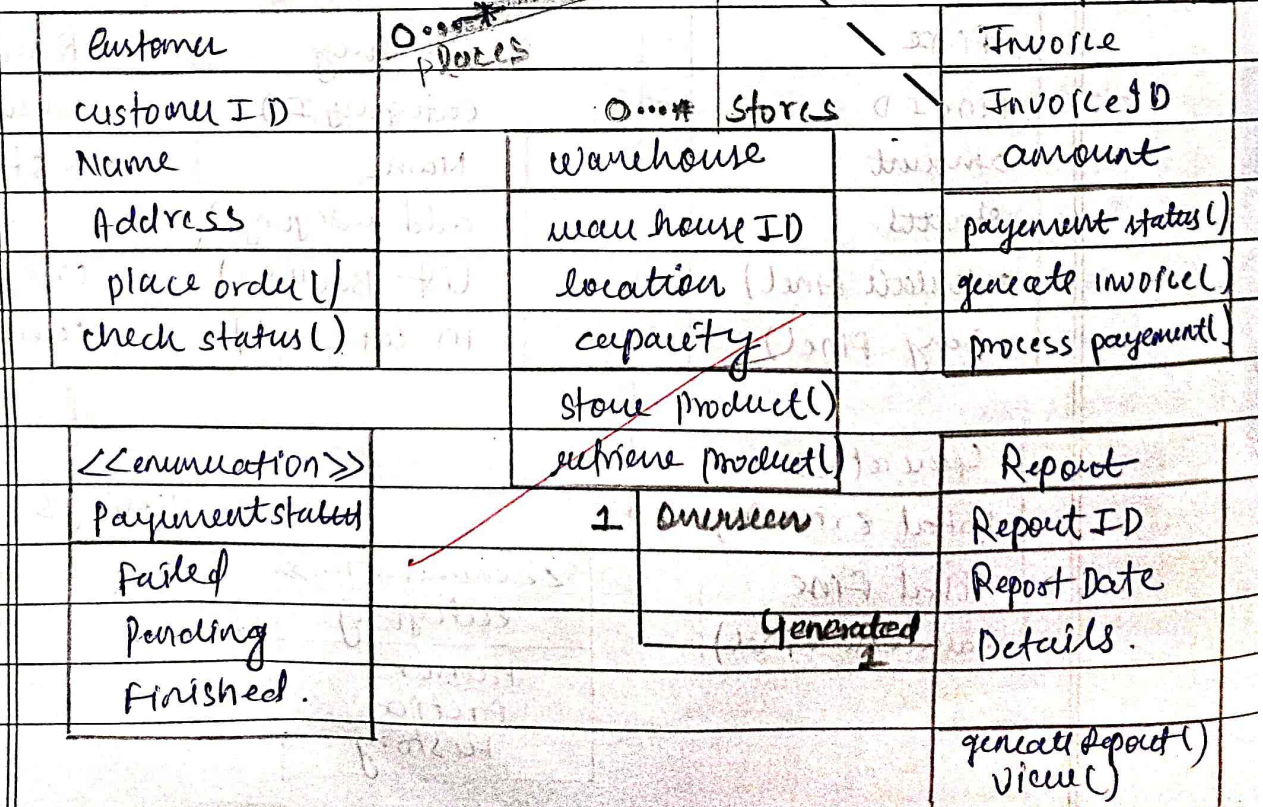 Customer
0....*
places
customer ID
Name
Address
place order()
check status()
0....*
stores
warehouse
warehouse ID
location
capacity
store product()
retrieve product()
Invoice
Invoice ID
amount
payement status()
generate invoice()
process payement()
<<enumeration>>
Payement status
Failed
Pending
Finished.
1
overseen
Generated
1
Report
Report ID
Report Date
Details.
generate Report()
view()